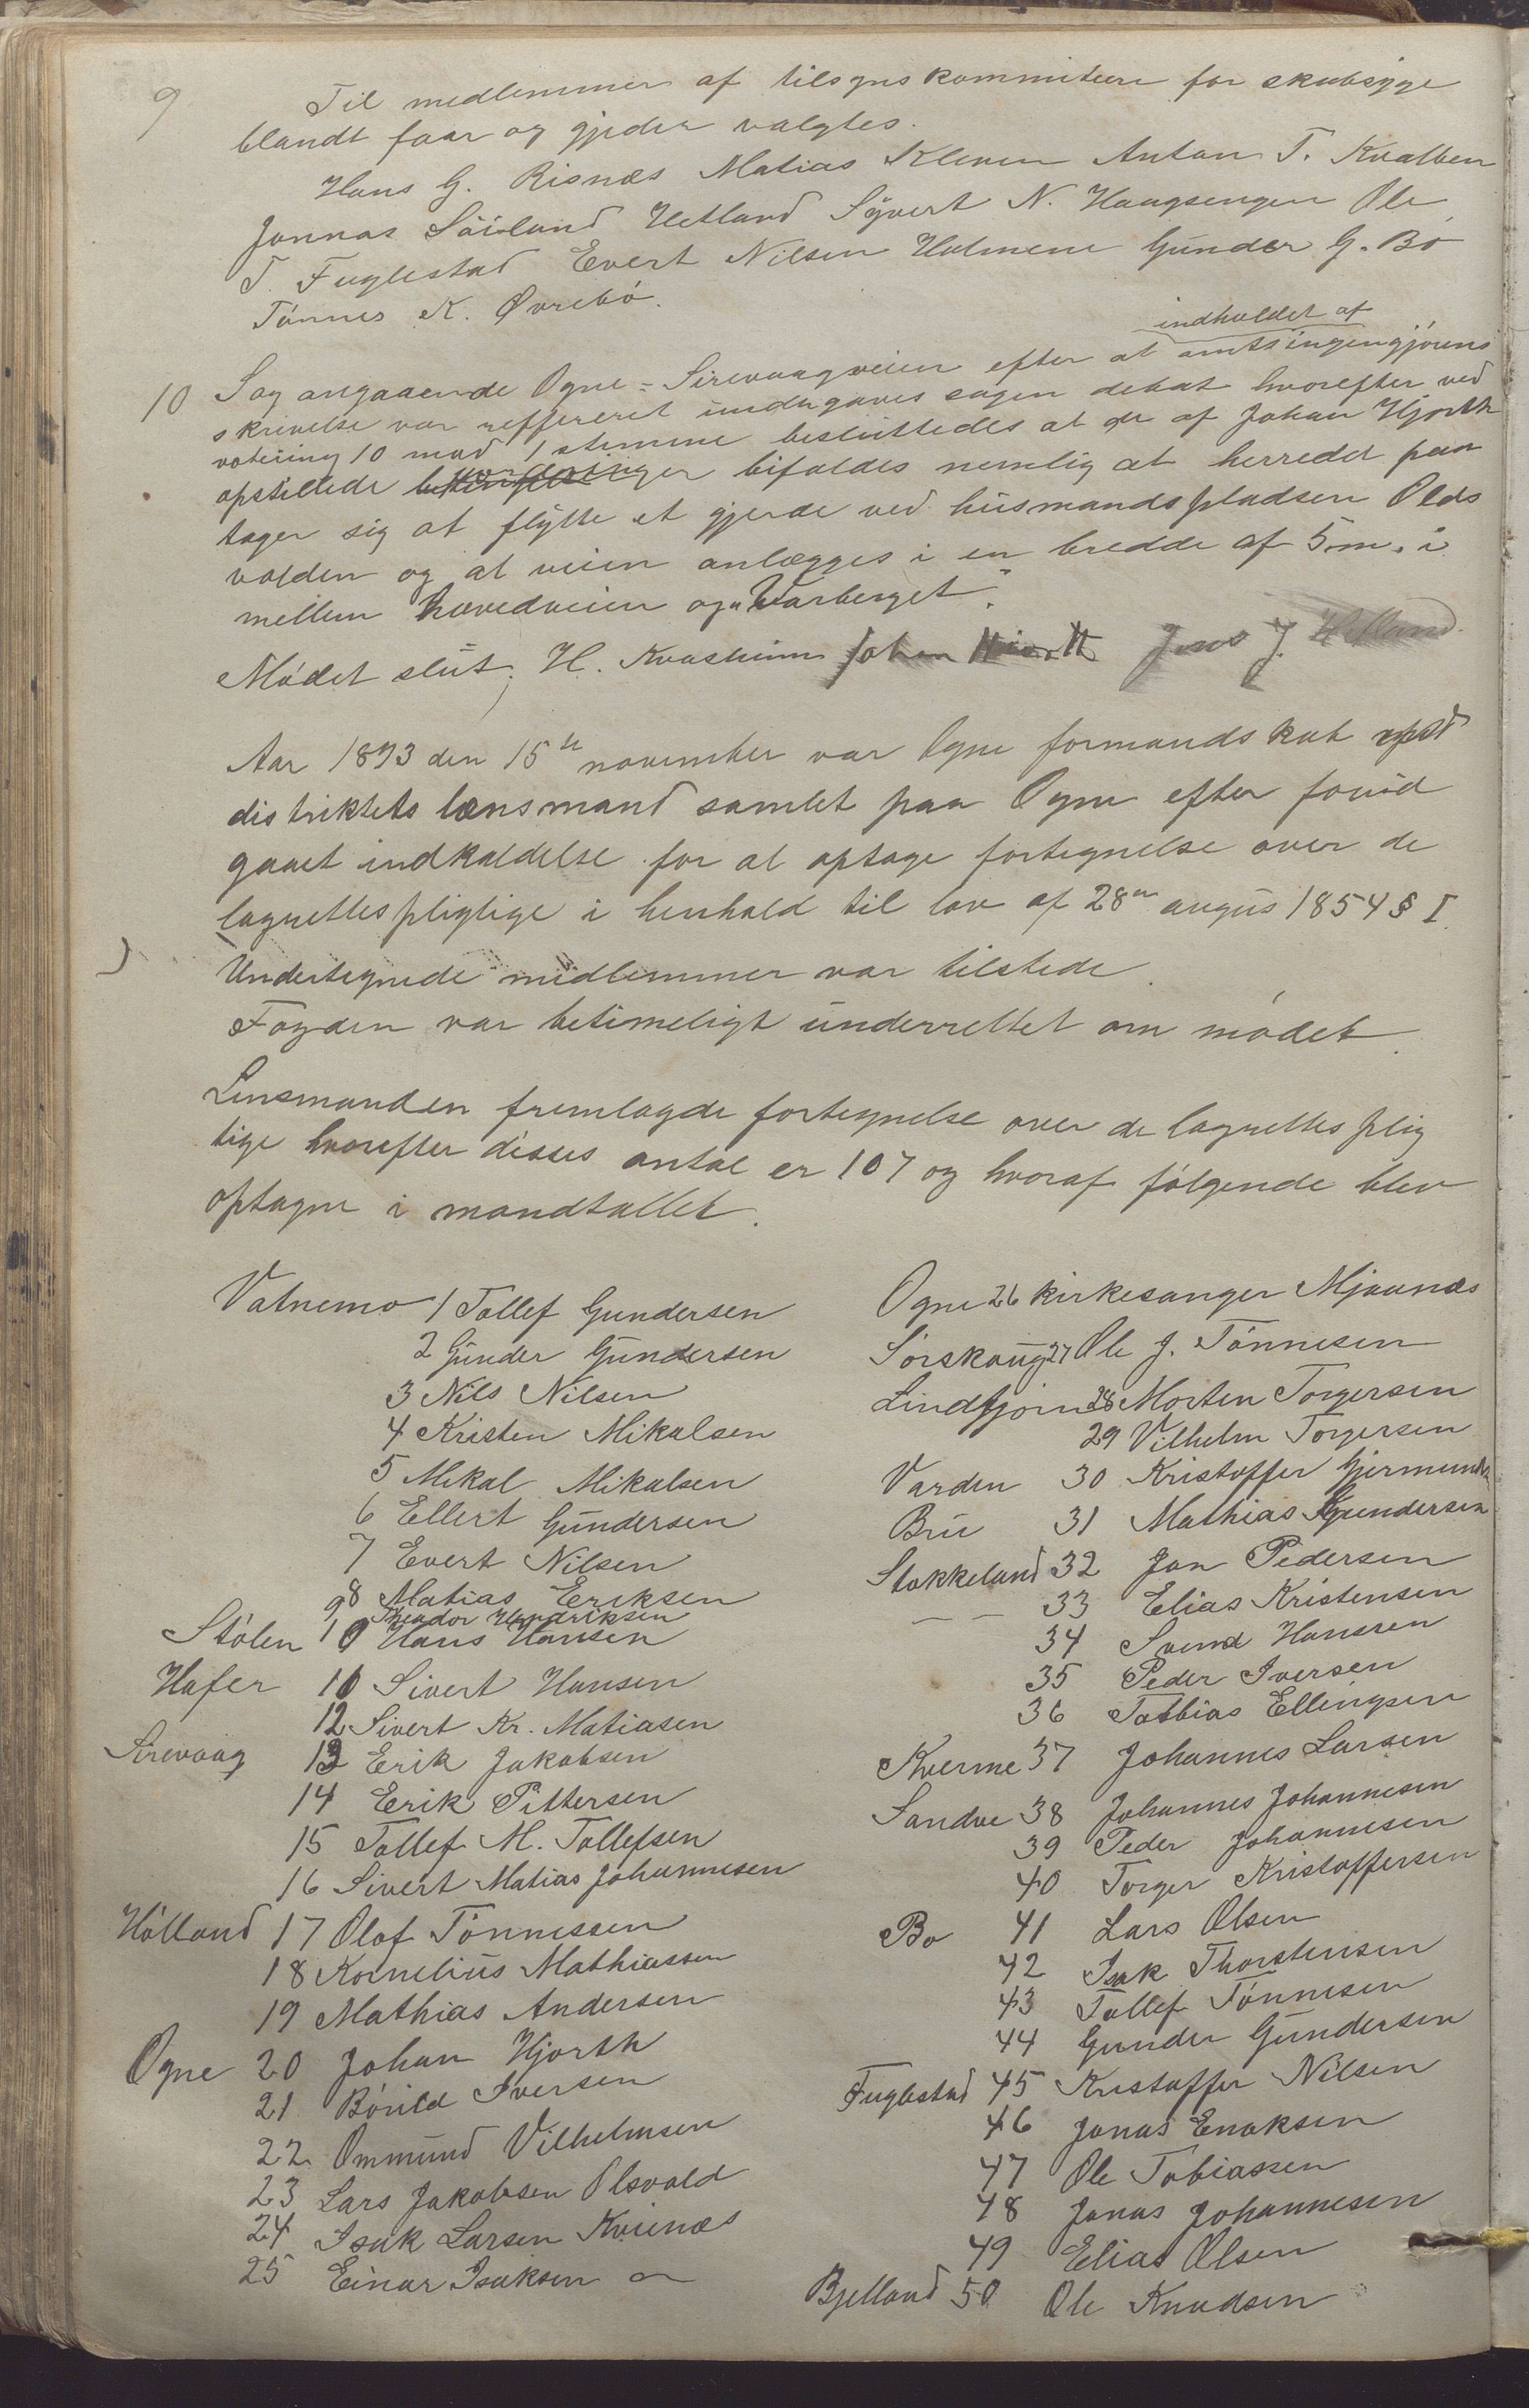 9 Til medlemmer af tilsynskommiteen for skabsyge
blandt faar og gjeder valgtes.
Hans G. Risnæs Matias Kleven Anton T. Kvalben
Jonnas Söiland Hetland Syvert N. Haagsengen Ole
T. Fuglestad Evert Nilsen Holmene Gunder G. Bö
Tönnes K. Øvrebö.
indholdet af
10 Sag angaaende Ogne-Sirevaagveien efter at amtsingeniörens
skrivelse var reffereret undergaves sagen debat hvorefter ved
votering 10 mod 1 stemme besluttedes at de af Johan Hjorth
opstillede bifaldes nemlig at herredet paa
tager sig at flytte et gjerde ved husmandspladsen Olds
volden og at veien anlægges i en bredde af 5 m. i
mellem hovedveien og "Varberget".
Mödet slut. H. Kvasheim Johan Hiorth Jens J. Hetland.
Aar 1893 den 15de november var Ogne formandskab
distriktets lensmand samlet paa Ogne efter forud
gaaet indkaldelse for at optage fortegnelse over de
lagrettespligtige i henhold til lov af 28de augus 1854 § 1
Undertegnede medlemmer var tilstede.
Fogden var betimeligt underrettet om mödet.
Lensmanden fremlagde fortegnelse over de lagrettesplig
tige hvorefter disses antal er 107 og hvoraf fölgende blev
optagne i mandtallet.
Vatnemo 1 Tollef Gundersen
2 Gunder Gundersen
3 Nils Nilsen
4 Kristen Mikalsen
5 Mikal Mikalsen
6 Ellert Gundersen
7 Evert Nilsen
8 Matias Eriksen
9 Theodor Hendriksen
Stölen 10 Hans Hansen
Hafer 11 Sivert Hansen
12 Sivert Kr. Matiasen
Sirevaag 13 Erik Jakobsen
14 Erik Pittersen
15 Tollef M. Tollefsen
16 Sivert Matias Johannesen
Hölland 17 Olaf Tönnessen
18 Kornelius Mathiassen
19 Mathias Andersen
Ogne 20 Johan Hjorth
21 Börild Iversen
22 Ommund Vilhelmsen
23 Lars Jakobsen Olsvold
24 Isak Larsen Kvinæs
25 Einar Isaksen
Ogne 26 kirkesanger Mjaanæs
Sörskaug 27 Ole J. Tönnesen
Lindtjörn 28 Morten Torgersen
29 Vilhelm Torgersen
Varden 30 Kristoffer Gjermunds
Bru 31 Mathias Gundersen
Stokkeland 32 Jon Pedersen
— — 33 Elias Kristensen
34 Svend Hanssen
35 Peder Iversen
36 Tobbias Ellingsen
Kverme 37 Johannes Larsen
Sandve 38 Johannes Johannesen
39 Peder Johannesen
40 Torger Kristoffersen
Bo 41 Lars Olsen
42 Isak Thorstensen
43 Tollef Tönnesen
44 Gunder Gundersen
Fuglestad 45 Kristoffer Nilsen
46 Jonas Enoksen
47 Ole Tobiassen
48 Jonas Johannesen
49 Elias Olsen
Bjelland 50 Ole Knudsen